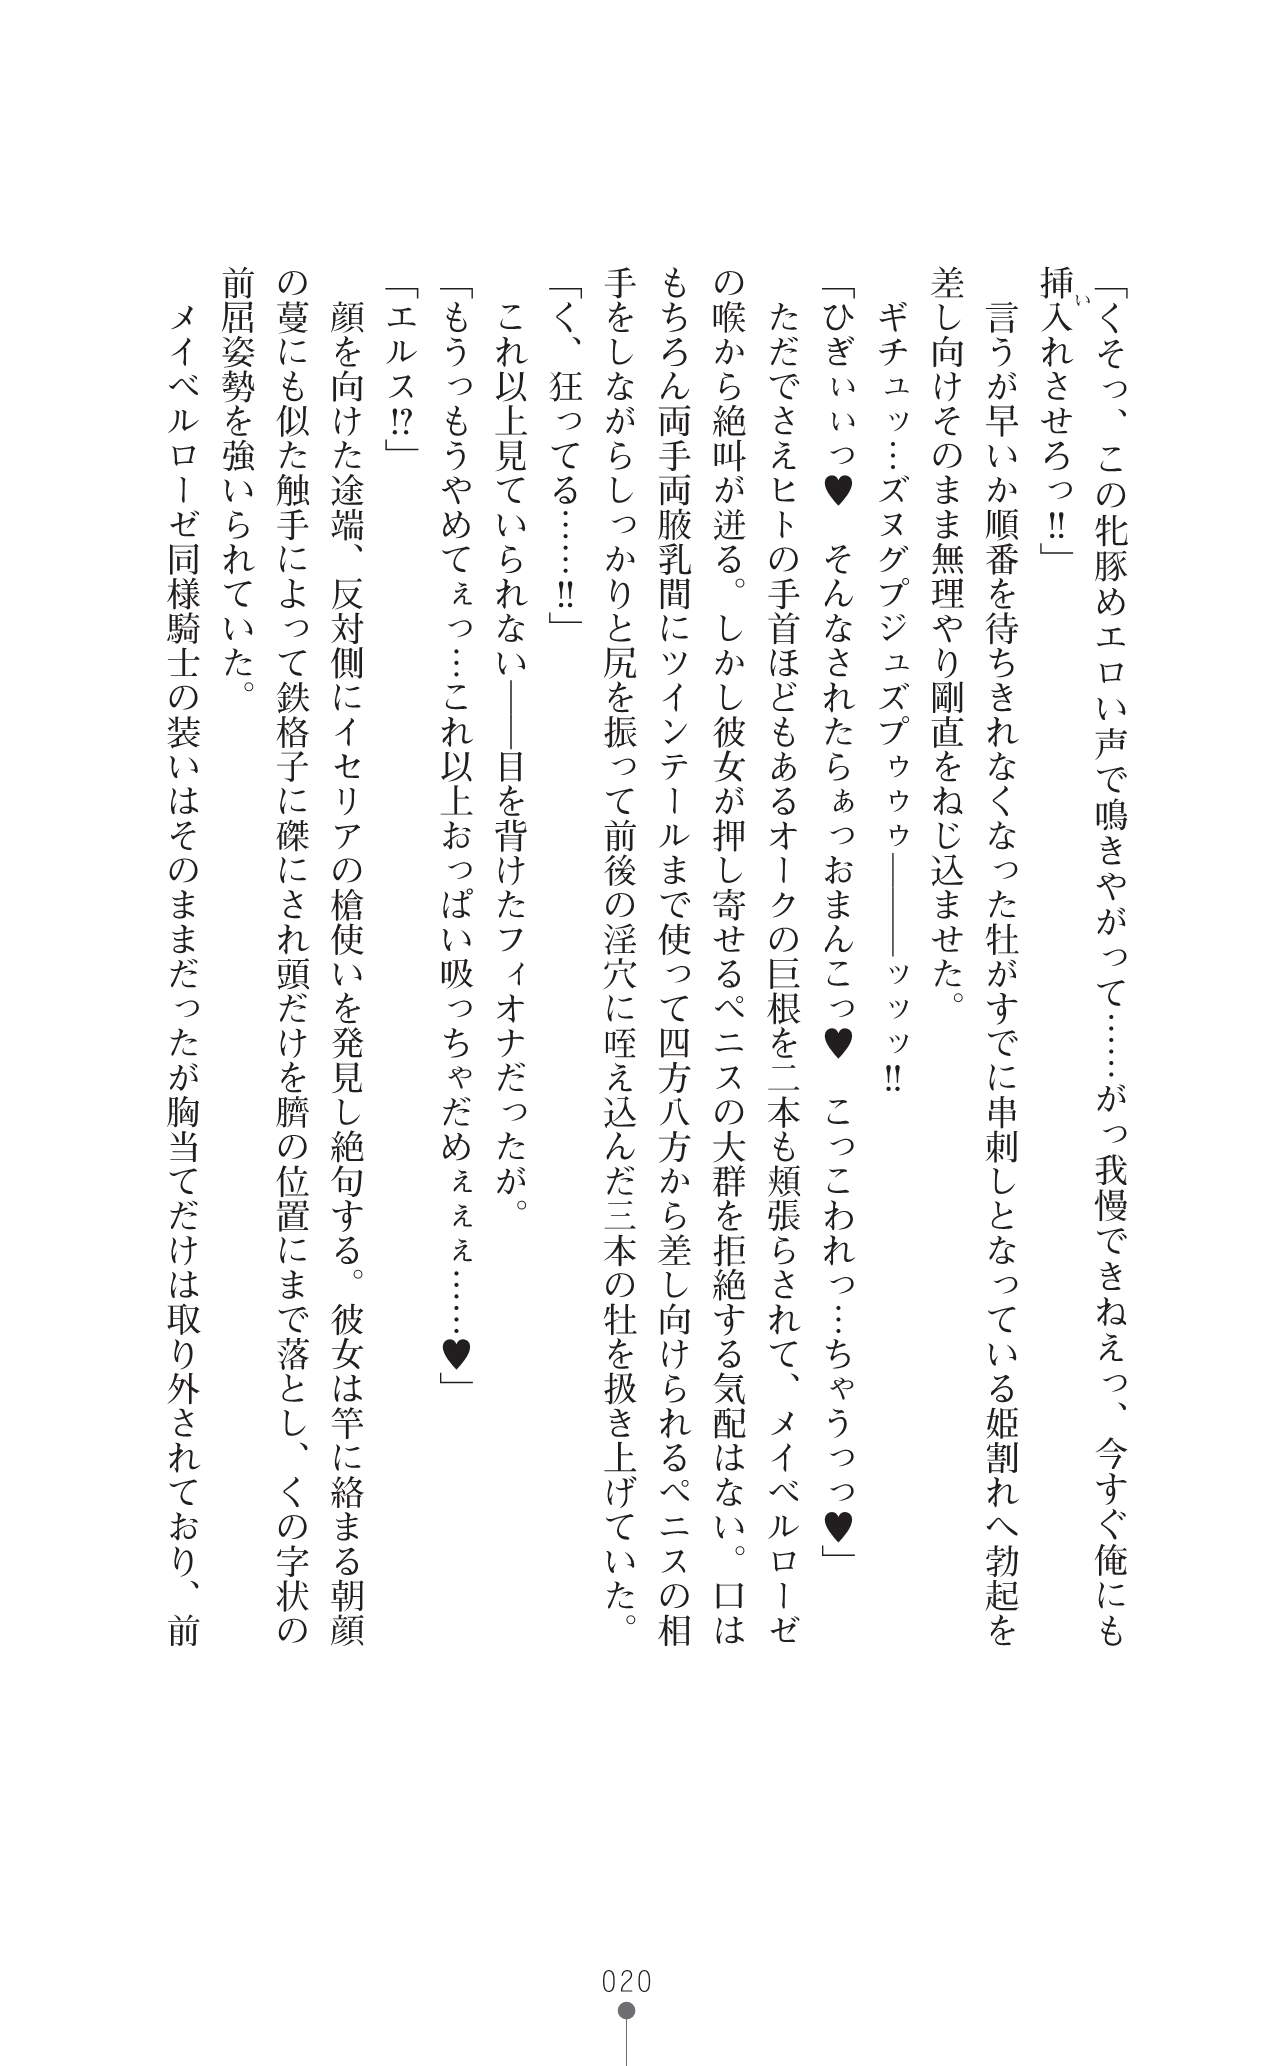 「くそっ、この牝豚めエロい声で鳴きやがって……がっ我慢できねえっ、今すぐ俺にも
挿入れさせろっ!!」
い
　言うが早いか順番を待ちきれなくなった牡がすでに串刺しとなっている姫割れへ勃起を
差し向けそのまま無理やり剛直をねじ込ませた。
　ギチュッ…ズヌグプジュズプゥゥゥ―――ッッッ!!
「ひぎぃぃっ♥　そんなされたらぁっおまんこっ♥　こっこわれっ…ちゃうっっ♥」
　ただでさえヒトの手首ほどもあるオークの巨根を二本も頬張らされて、メイベルローゼ
の喉から絶叫が迸る。しかし彼女が押し寄せるペニスの大群を拒絶する気配はない。口は
もちろん両手両腋乳間にツインテールまで使って四方八方から差し向けられるペニスの相
手をしながらしっかりと尻を振って前後の淫穴に咥え込んだ三本の牡を扱き上げていた。
「く、狂ってる……!!」
　これ以上見ていられない――目を背けたフィオナだったが。
「もうっもうやめてぇっ…これ以上おっぱい吸っちゃだめぇぇぇ……♥」
「エルス!?」
　顔を向けた途端、反対側にイセリアの槍使いを発見し絶句する。彼女は竿に絡まる朝顔
の蔓にも似た触手によって鉄格子に磔にされ頭だけを臍の位置にまで落とし、くの字状の
前屈姿勢を強いられていた。
　メイベルローゼ同様騎士の装いはそのままだったが胸当てだけは取り外されており、前
020